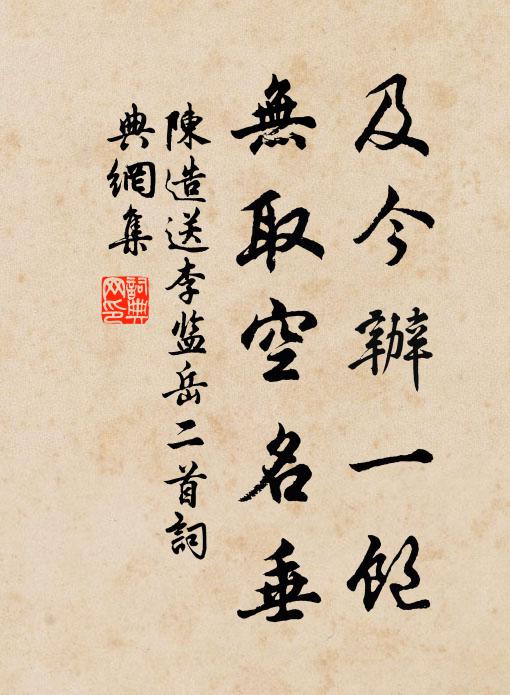 及今辦一飽
無取空名垂
陳造送李監岳二首詞
典網集
詞典
网印